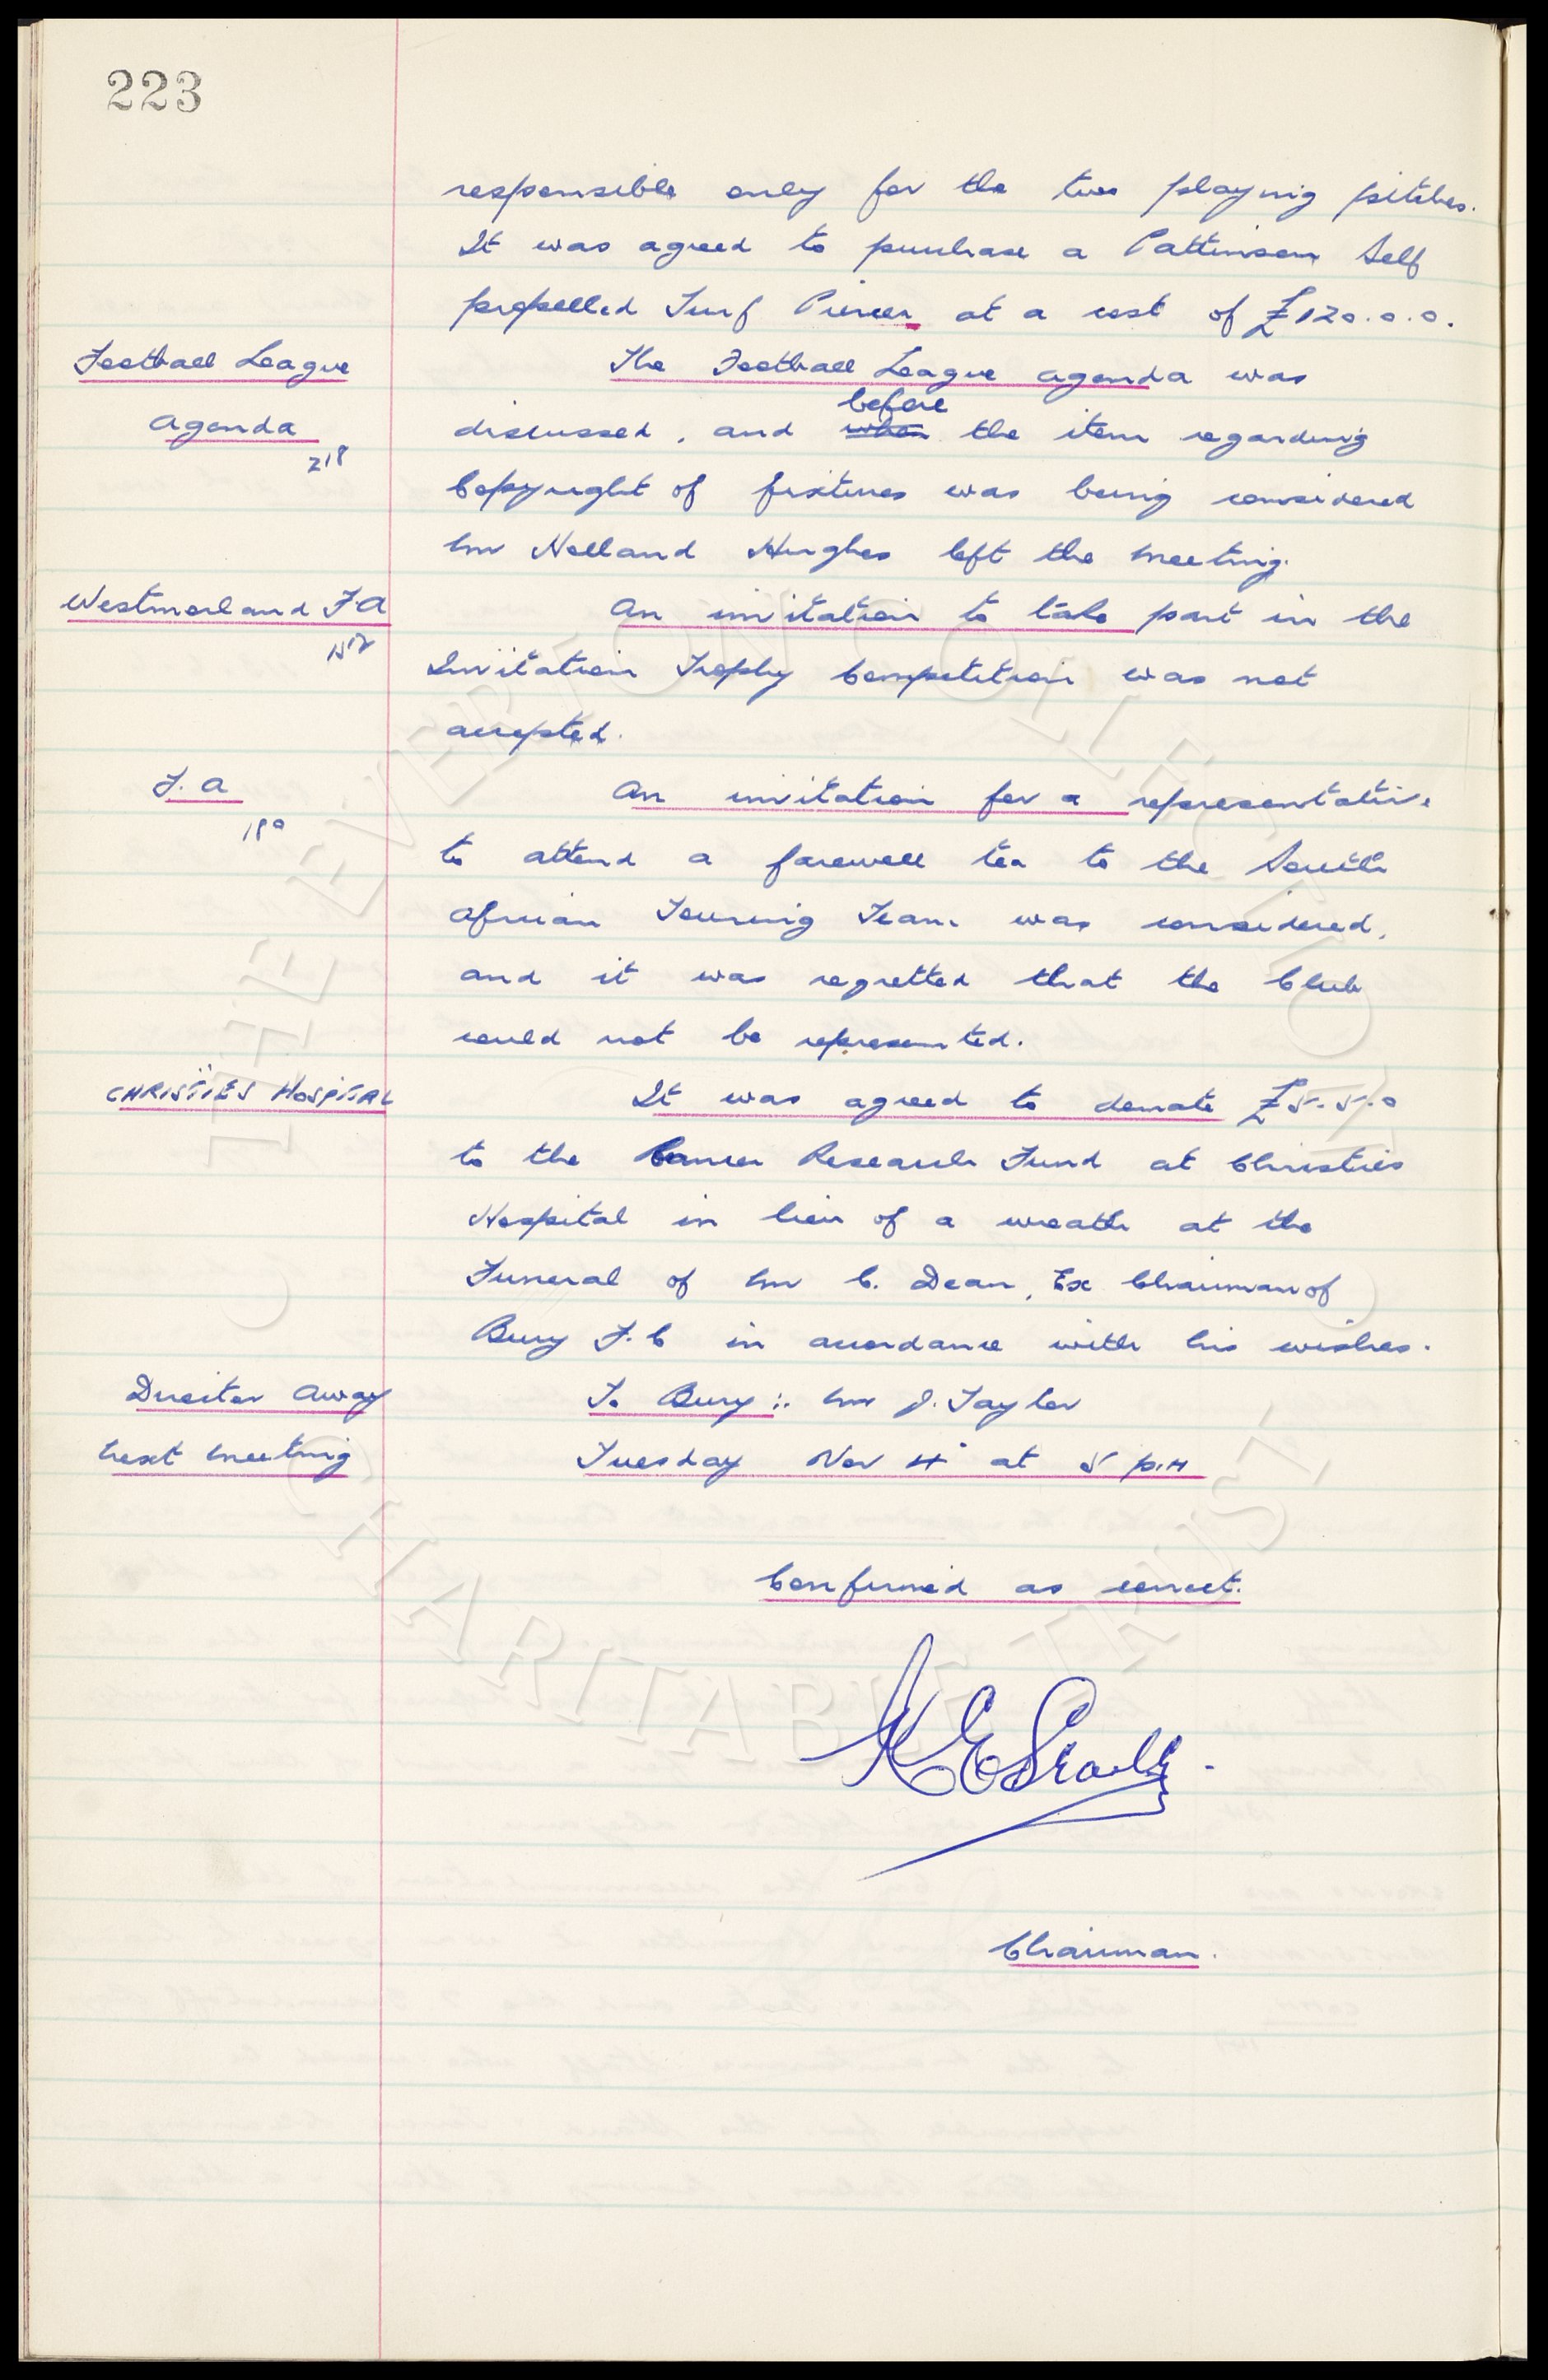 223
responsible only for the two playing pitches.
It was agreed to purchase a Pattinson Self
propelled Turf Piercer at a cost of £120.0.0.
Football League
Agenda
218
The Football League agenda was
before
discussed, and when the item regarding
Copyright of fixtures was being considered
Mr Holland Hughes left the meeting.
Westmorland F.A
An invitation to take part in the
Invitation Trophy Competition was not
accepted.
F.A
180
An invitation for a representative
to attend a farewell tea to the South
African Touring Team was considered,
and it was regretted that the Club
could not be represented.
CHRISTIES HOSPITAL
It was agreed to donate £5.5.0
to the Cancer Research Fund at Christies
Hospital in lieu of a wreath at the
Funeral of Mr C. Dean, Ex Chairman of
Bury F.C in accordance with his wishes.
Director Away
To Bury :. Mr J. Taylor
Next Meeting
Tuesday Nov 4 at 5 p.m
Confirmed as correct.
Chairman.
THE EVERTON COLLECTION
CHARITABLE TRUST